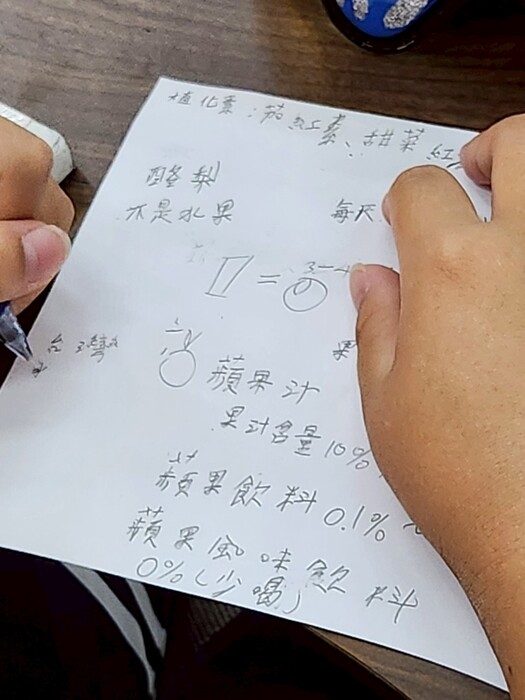 植化素：茄紅素、甜菜紅
酪梨
不是水果
每天
=
台灣
果
蘋果汁
果汁含量10%
蘋果飲料0.1%~
蘋果風味飲料
0%(少喝)